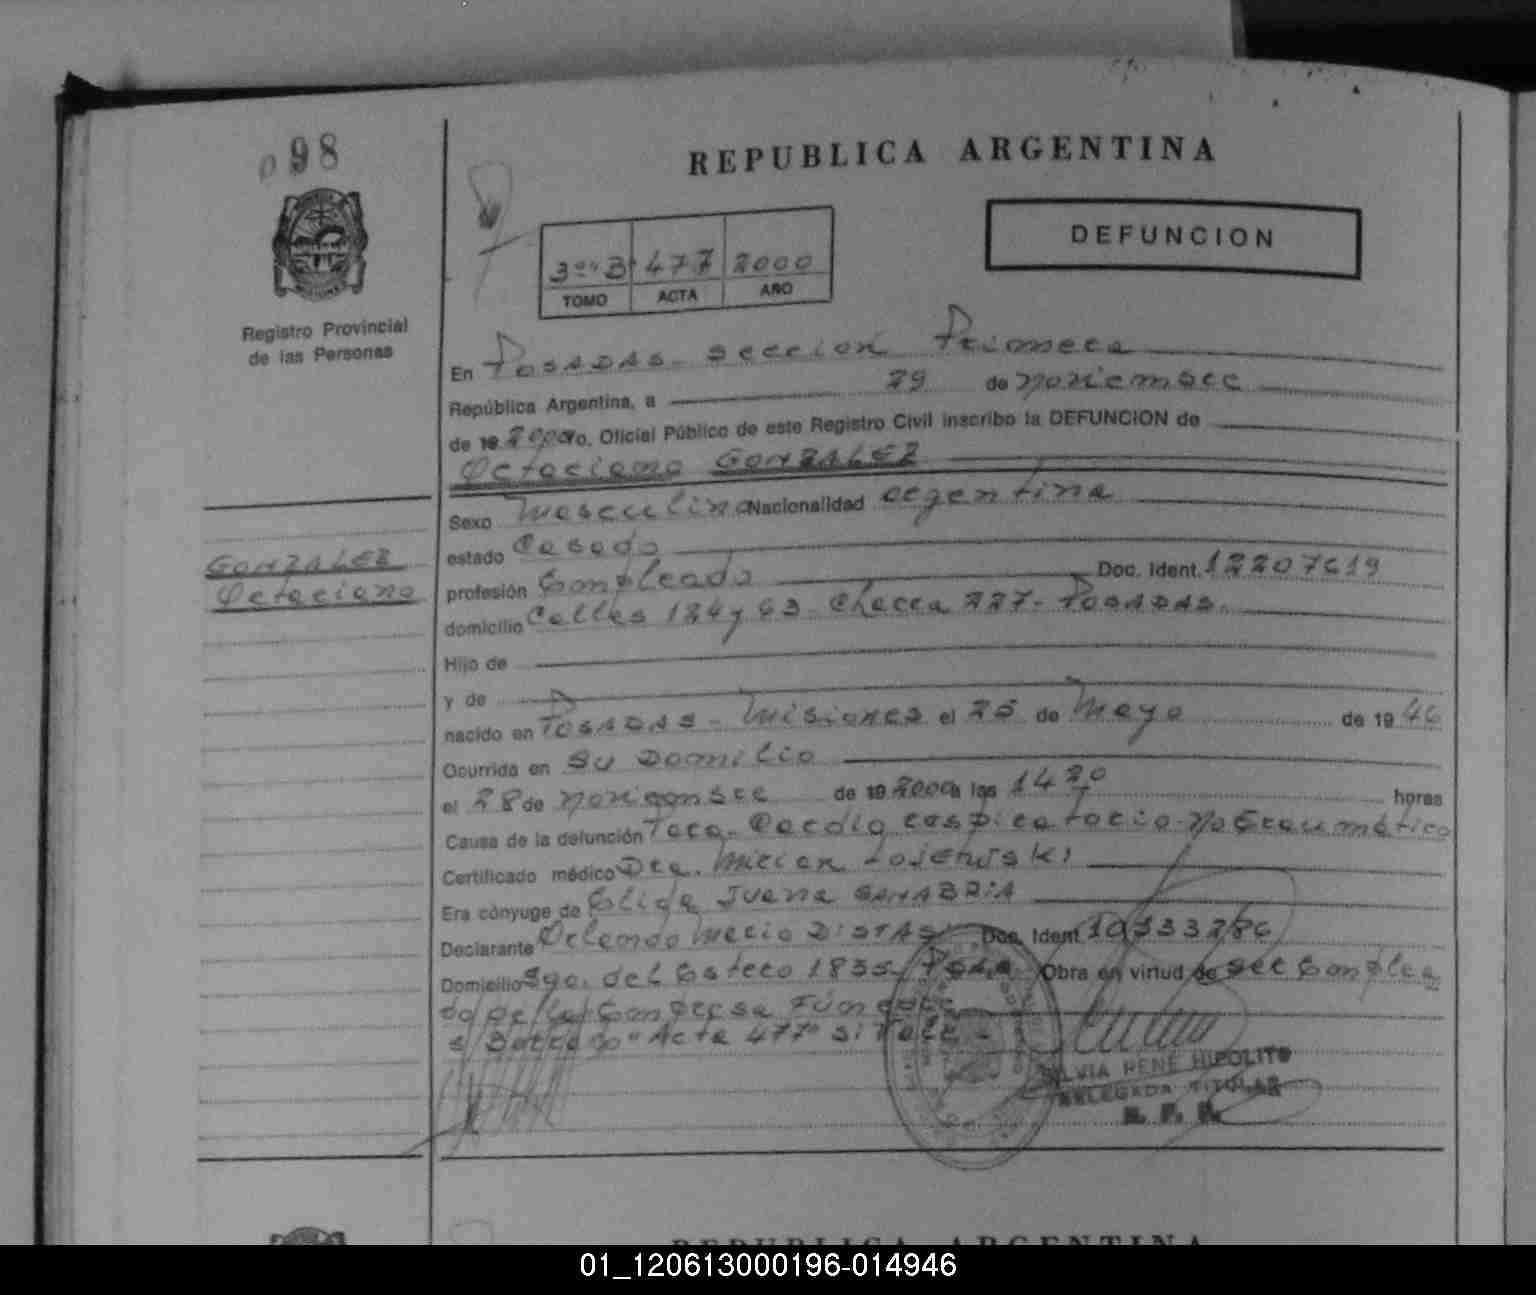 098
REPUBLICA ARGENTINA
DEFUNCION
3º"B" 477 2000
TOMO ACTA AÑO
Registro Provincial
de las Personas
En POSADAS - Seccion Primera
República Argentina, a 29 de Noviembre
de 19 2000 yo, Oficial Público de este Registro Civil inscribo la DEFUNCION de
Octaciano GONZALEZ
Sexo Masculino Nacionalidad argentina
estado Casado
GONZALEZ
Octaciano
profesión Empleado Doc. Ident. 12207619
domicilio Calles 124 y 63 - Chacra 227 - POSADAS.
Hijo de
y de
nacido en POSADAS - Misiones el 25 de Mayo de 19 46
Ocurrida en su Domicilio
el 28 de Noviembre de 19 2000 a las 14 20 horas
Causa de la defunción Paro Cardio respiratorio - No traumático
Certificado médico Dra. Mirian
Era cónyuge de Elida Juana SANABRIA
Declarante Orlando Mario Doc. Ident. 10333286
Domicilio Sgo. del Estero 1835 - Obra en virtud de ser Emplea
do de la Empresa Fúnebre
"Acta 477" si vale -
SILVIA RENE HIPOLITO
DELEGADA TITULAR
R. P. P.
REPUBLICA ARGENTINA
01_120613000196-014946